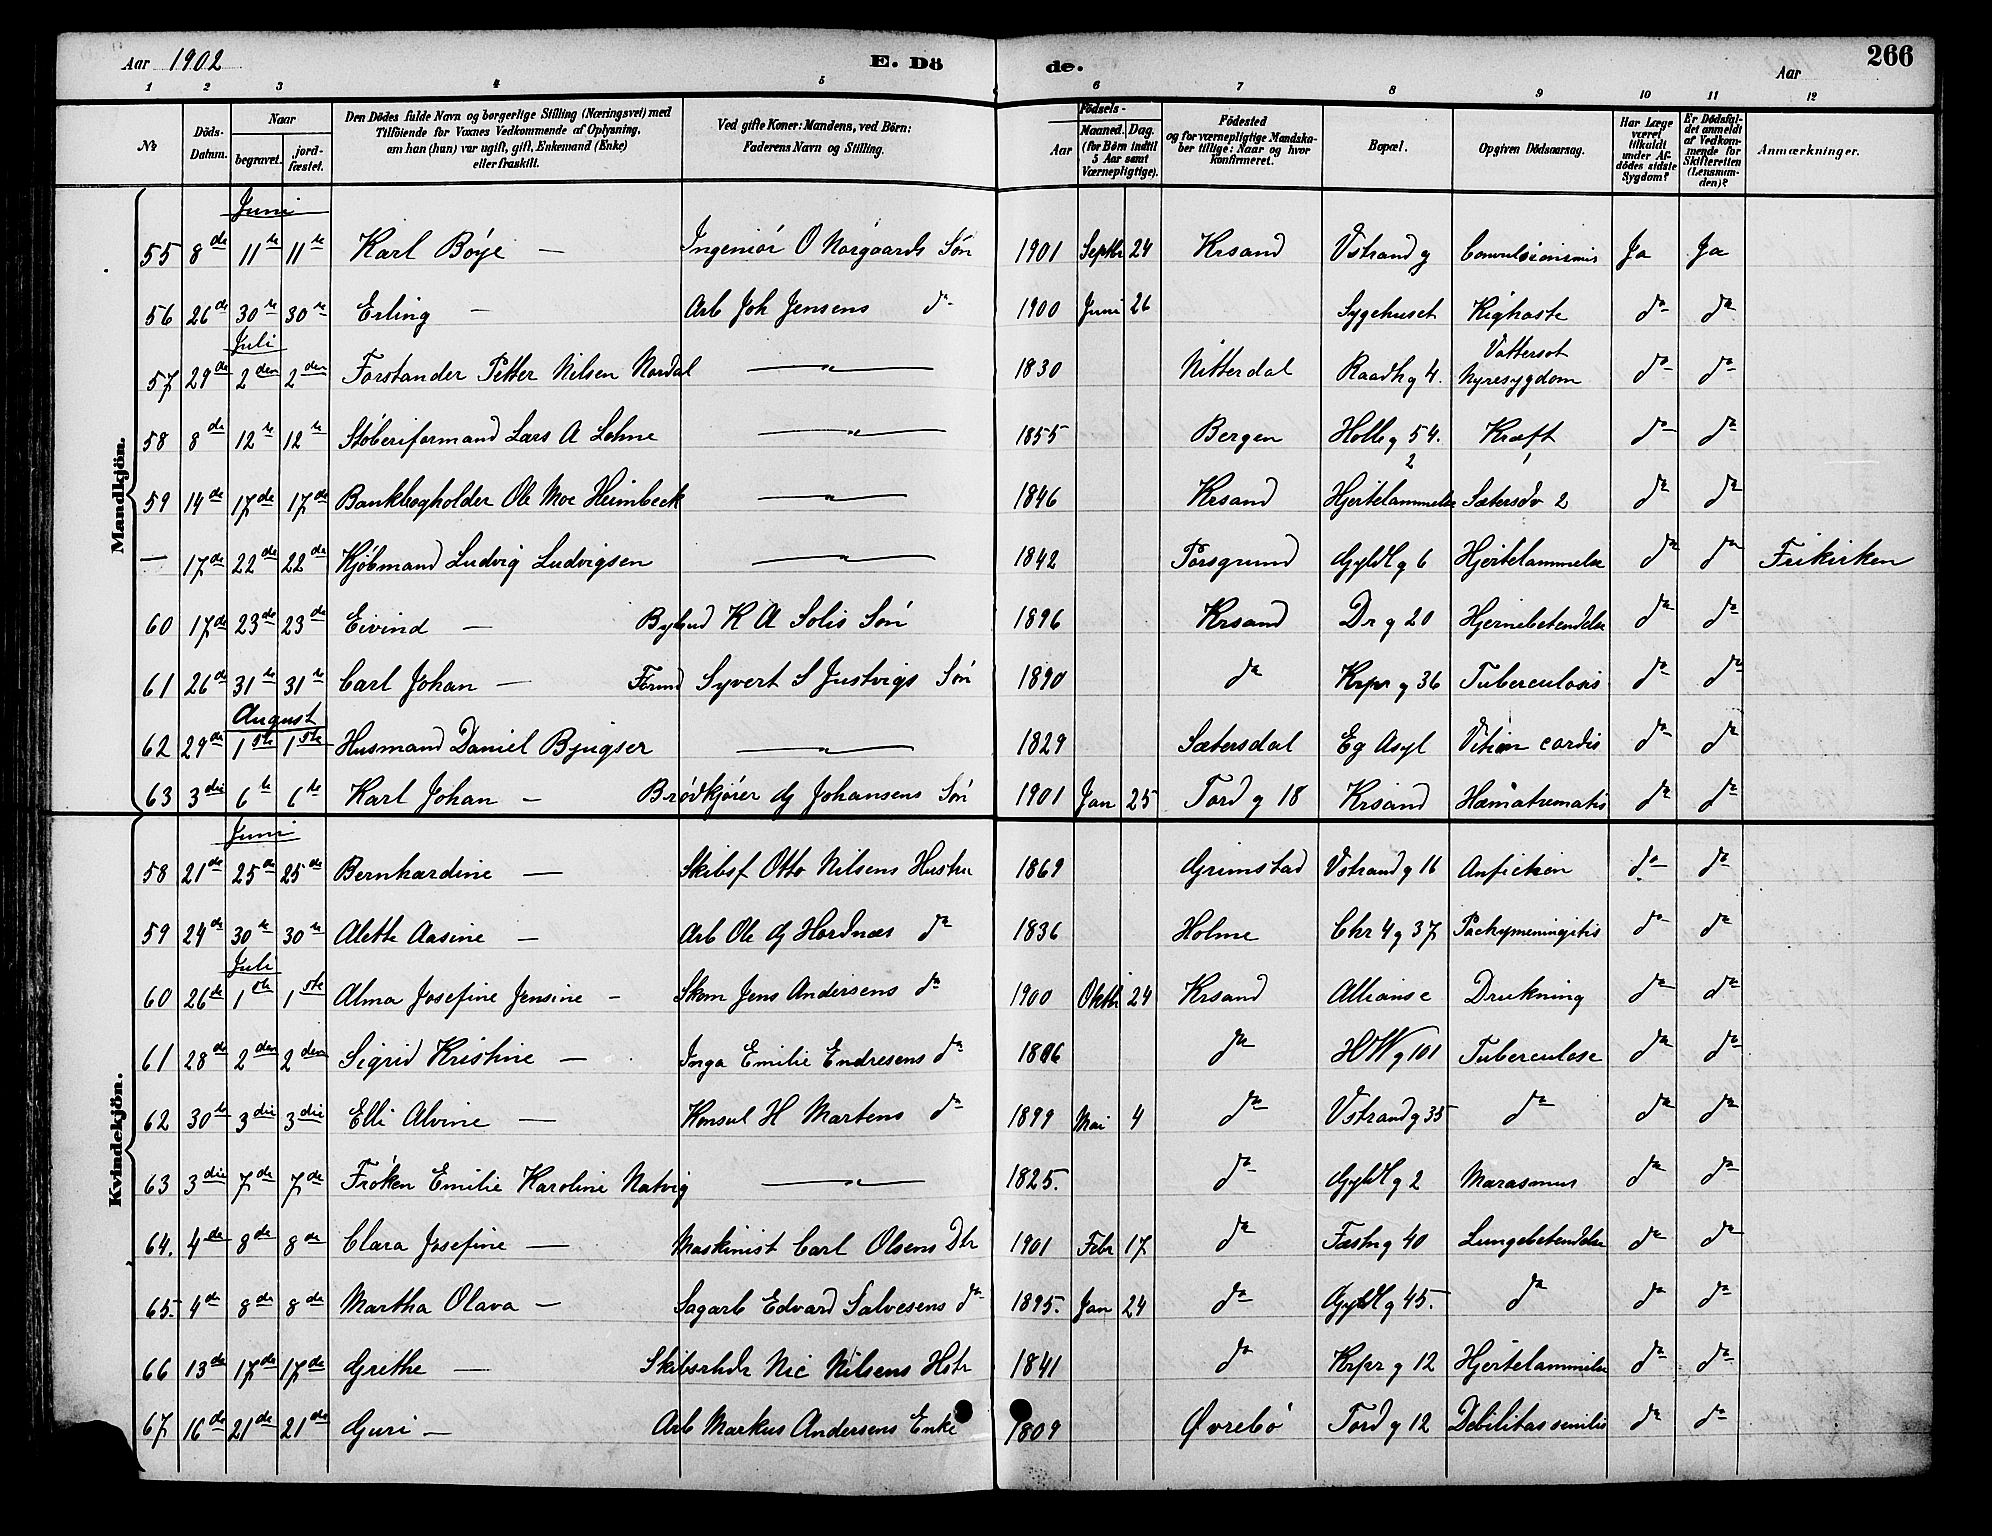 Aar 1902 E. Dö de. Aar 266
1 2 3 4 5 6 7 8 9 10 11 12
№ Döds-Datum. Naar begravet. jord-fæstet. Den Dödes fulde Navn og borgerlige Stilling (Næringsvei) med Tilföiende for Voxnes Vedkommende af Oplysning, om han (hun) var ugift, gift, Enkemand (Enke) eller fraskilt. Ved gifte Koner: Mandens, ved Börn: Faderens Navn og Stilling. Födsels- Aar Maaned. Dag. (for Börn indtil 5 Aar samt Værnepligtige). Födested og for værnepligtige Mandskaber tillige: Naar og hvor konfirmeret. Bopæl. Opgiven Dödsaarsag. Har Læge været tilkaldt under Afdödes sidste Sygdom? Er Dödsfaldet anmeldt af Vedkommende for Skifteretten (Lensmanden)? Anmærkninger.
Mandkjön.
Juni
55 8de 11te 11te Karl Böye — Ingeniör O Norgaards Sön 1901 Septbr 24 Krsand Vstrand g Ja Ja
56 26de 30te 30te Erling — Arb Joh Jensens do 1900 Juni 26 Sygehuset Kighoste do do
Juli
57 29de 2den 2den Forstander Petter Nilsen Nordal — " — 1830 Nitterdal Raadh g 4. Vattersot Nyresygdom do do
58 8de 12te 12te Stöberiformand Lars A Lohne — " — 1855 Bergen Holleg 54. 2 Kræft do do
59 14de 17de 17de Bankbogholder Ole Moe Heimbeck — " — 1846 Krsand Hjertelammelse Sætersdv 2 do do
— 17de 22de 22de Kjöbmand Ludvig Ludvigsen — " — 1842 Porsgrund Gyldl g 6 Hjertelammelse do do Frikirken
60 17de 23de 23de Eivind — Bybud K A Solis Sön 1896 Krsand Dr g 20 Hjernebetendelse do do
61 26de 31te 31te Carl Johan — Formd Syvert S Justvigs Sön 1890 do Krpr g 36 Tuberculosis do do
August
62 29de 1ste 1ste Husmand Daniel Bjugser — " — 1829 Sætersdal Eg Asyl Vitium cordis do do
63 3die 6te 6te Karl Johan — Brödkjörer Johansens Sön 1901 Jan 25 Tord g 18 Krsand Hæmatremetis do do
Kvindekjön.
Juni
58 21de 25de 25de Bernhardine — Skibsf Otto Nilsens Hustru 1869 Grimstad Vstrand g 16 do do
59 24de 30te 30te Alette Aasine — Arb Ole Hordnæs do 1836 Holme Chr 4 g 37 Pachymeningitis do do
Juli
60 26de 1ste 1ste Alma Josefine Jensine — Skom Jens Andersens do 1900 Oktbr 24 Krsand Allianse Drukning do do
61 28de 2den 2den Sigrid Kristine — Inga Emilie Endresens do do HW g 101 Tuberculose do do
62 30te 3die 3die Elli Alvine — Konsul H Martens do 1899 Mai 4 do Vstrand g 35 do do do
63 3die 7de 7de Fröken Emilie Karoline Natvig — " — 1825. do Gyldl g 2 Marasmus do do
64. 4de 8de 8de Clara Josefine — Maskinist Carl Olsens Dtr 1901 Febr 17 do Fæstn g 40 Lungebetendelse do do
65. 4de 8de 8de Martha Olava — Sagarb Edvard Salvesens do 1895. Jan 24 do Gyldl g 45. do do do
66 13de 17de 17de Grethe — Nic Nilsens Hstr 1841 do Krpr g 12 Hjertelammelse do do
67 16de 21de 21de Guri — Arb Markus Andersens Enke 1809 Øvrebö Tord g 12 Debilitas senilis do do